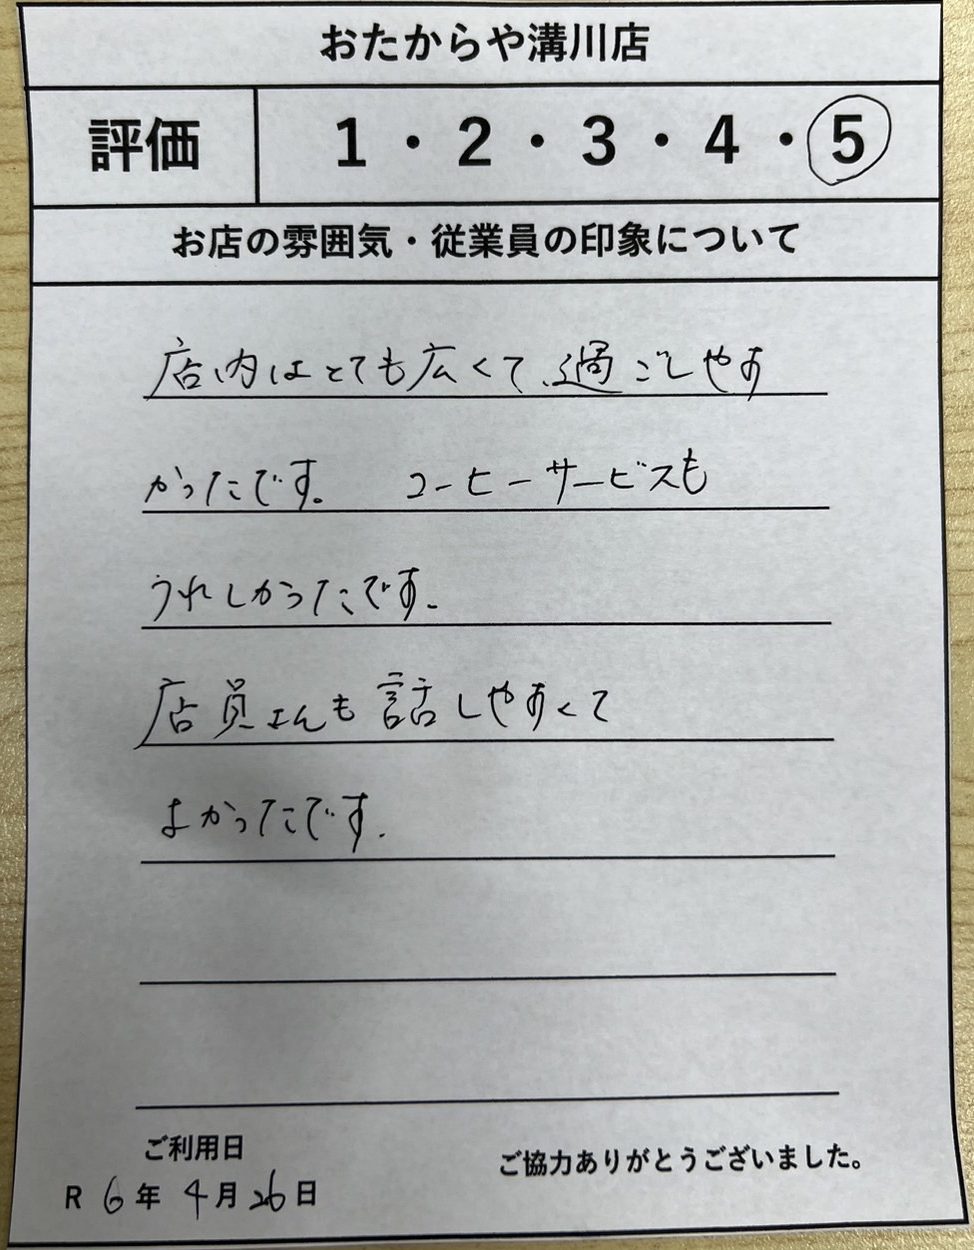 おたからや溝川店
評価 1・2・3・4・5
お店の雰囲気・従業員の印象について
店内はとても広くて、過ごしやす
かったです。 コーヒーサービスも
うれしかったです。
店員さんも話しやすくて
よかったです.
ご利用日
R 6年 4月 26日
ご協力ありがとうございました。